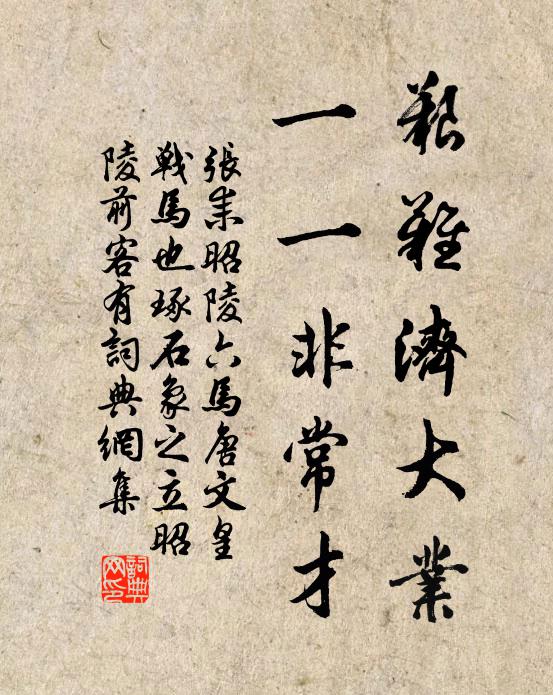 艱難濟大業
一一非常才
張耒昭陵六馬唐文皇
戰馬也琢石象之立昭
陵前客有詞典網集
詞典
网印